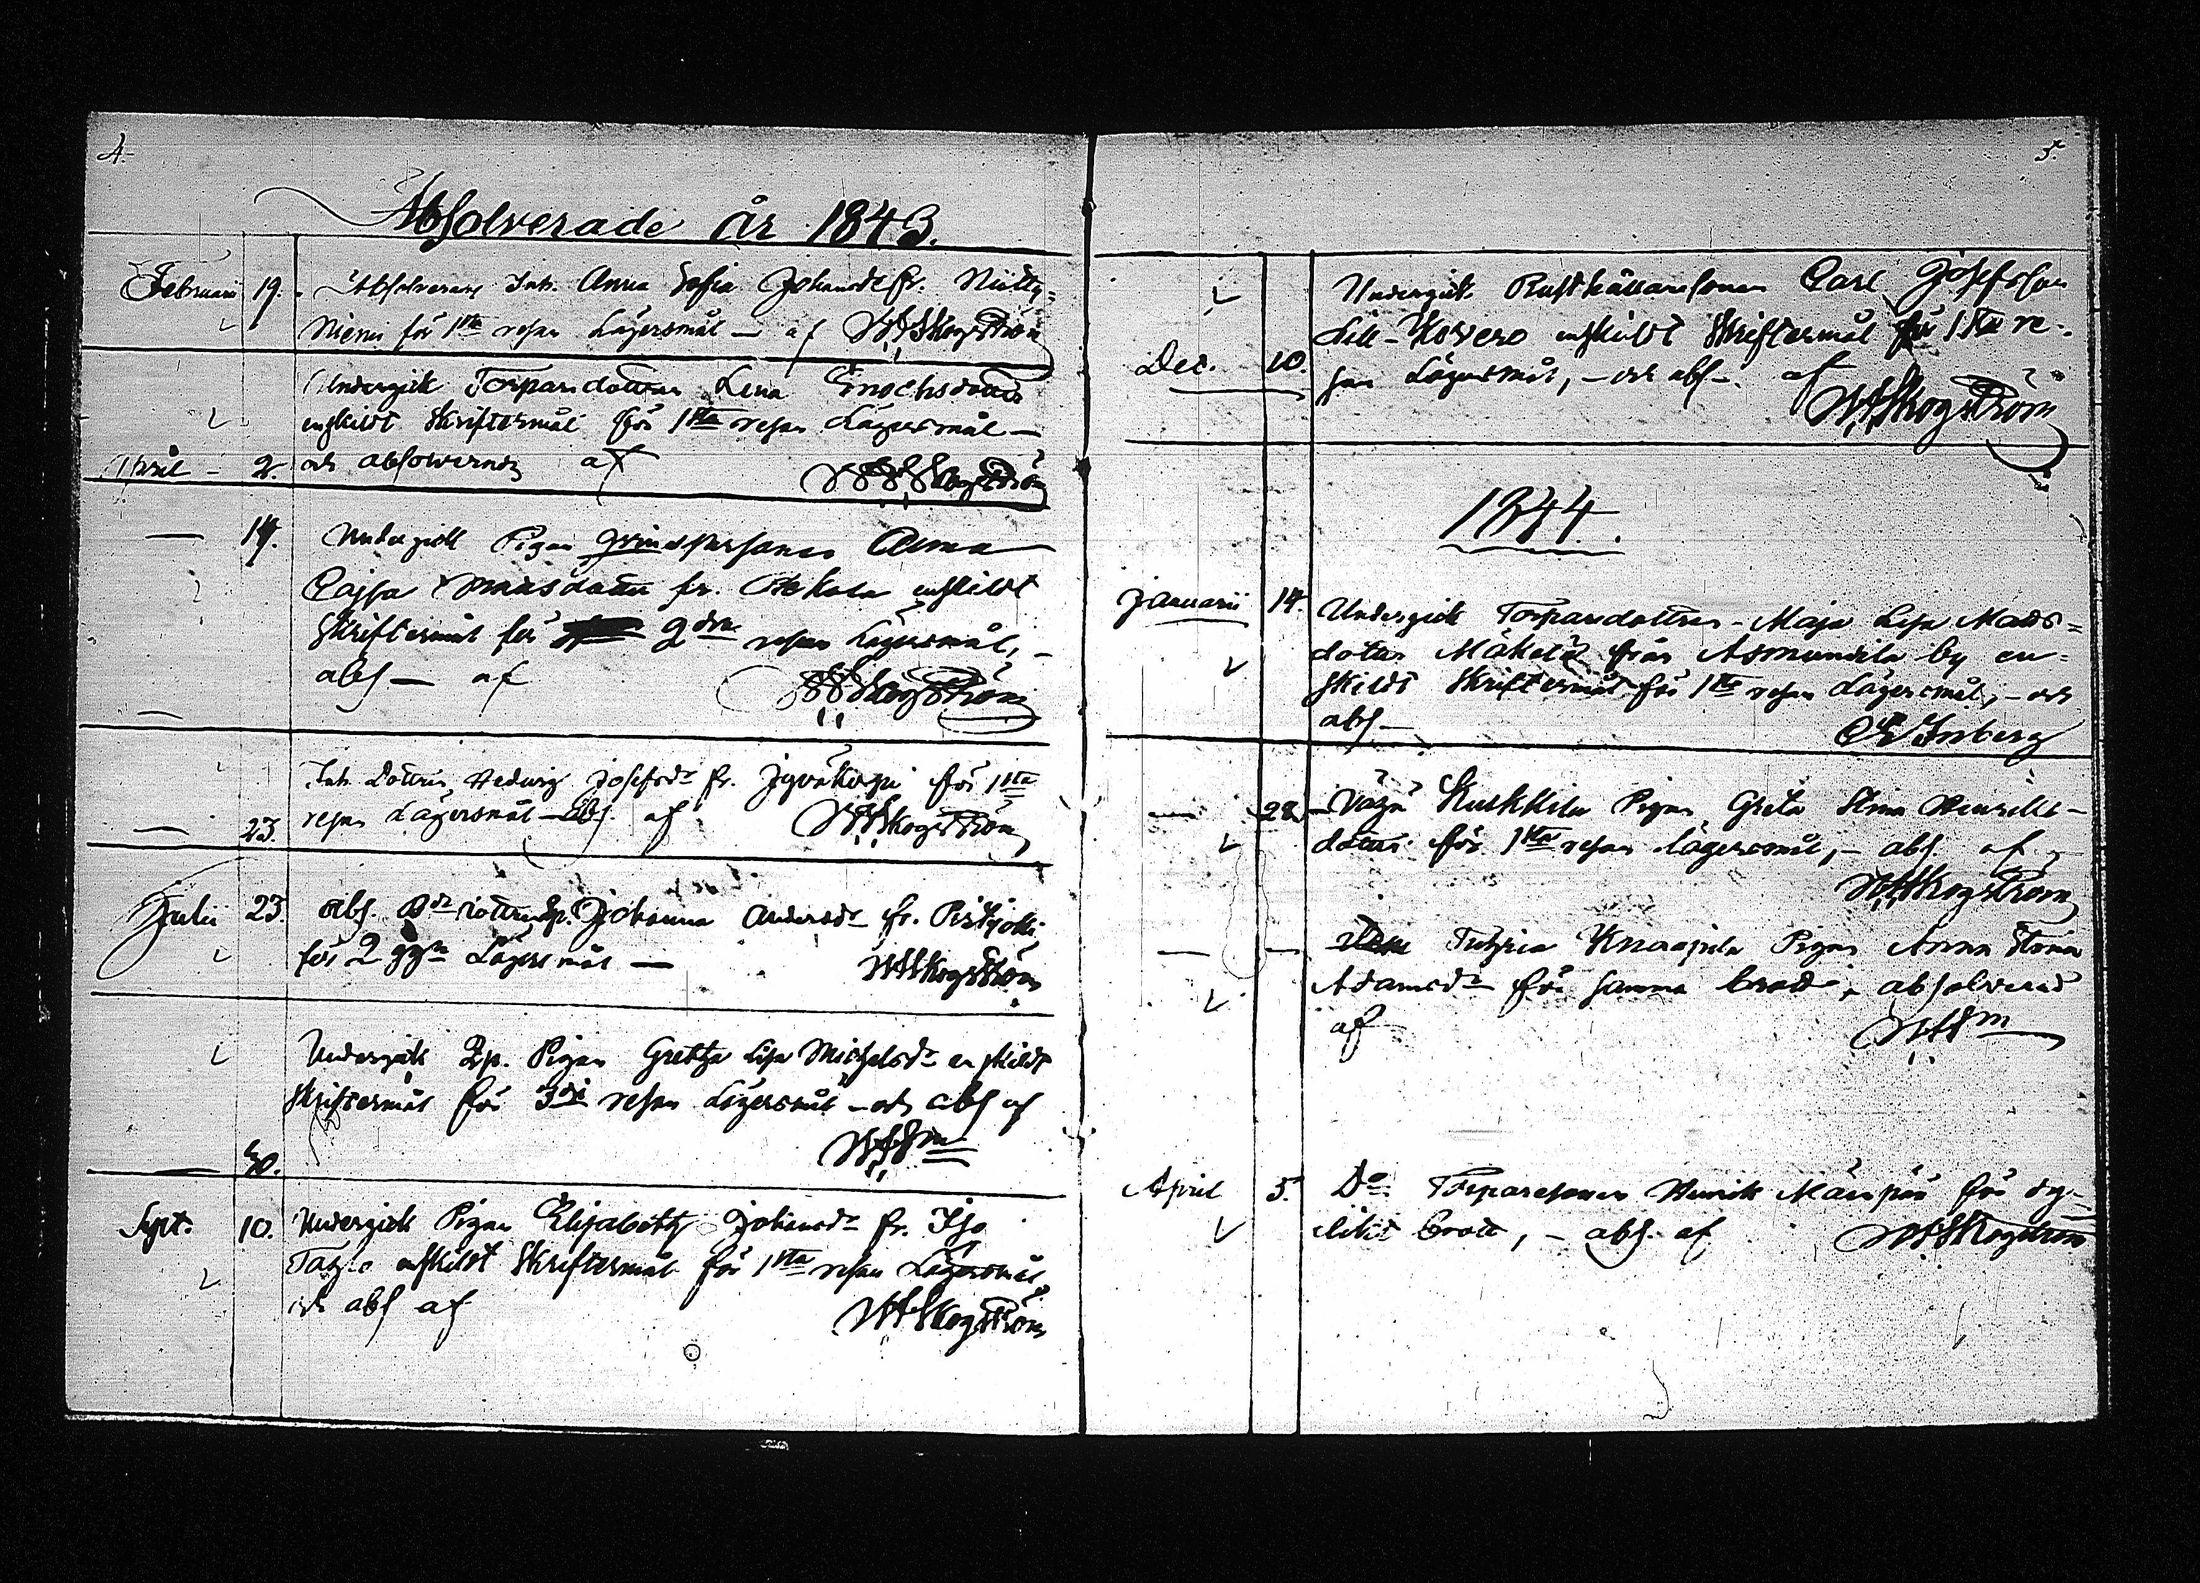 4.
Absolverade År 1843.
Februarii 19. Absolverades Inh. Anna Sofia Johansdr fr.
Niemi för 1sta resan Lägersmål — af WFSkogström
Undergick Torparedottren Lena Enochsdotter
enskildt Skriftermål för 1sta resan Lägersmål —
April — 2. och absolverades af WFSkogström
— 17. Undergick Pigan Anna
Cajsa fr. enskildt
Skriftermål för 2dra resan Lägersmål, —
abs — af WFSkogström
Inh. Dottren Hedwig Josefsdr fr. för 1sta
— 23. resan Lägersmål — Abs. af WFSkogström
Julii 23. Abs. Johanna Andersdr fr.
för 2 ggn Lägersmål — WFSkogström
Undergick Pigan Gretha Lisa Michelsdr enskildt
Skriftermål för 3dje resan Lägersmål — och abs af
— 30. WFSm
Sept. 10. Undergick Pigan Elisabeth Johansdr fr. Iso
enskildt Skriftermål för 1sta resan Lägersmål
och abs af WFSkogström
5.
Undergick Rusthållaresonen Carl Josefsson
Lill-Kovero enskildt Skriftermål för 1sta re-
Dec. 10. san Lägersmål, — och abs —. af
WFSkogström
1844.
Januarii 14. Undergick Torparedottren — Maja Lisa Matts=
dotter Mäkelä från Asmundila by en=
skildt Skriftermål för 1sta resan Lägersmål, — och
abs —
— 28. Pigan Greta Stina Henriks-
dotter för 1sta resan lägersmål, — abs. af
WFSkogström
— — Pigan Anna Stina
Adamsdr för samma brott, absolverad
af WFSm
April 5. Do Torparesonen Henrik för dy-
likt brott, — abs. af WFSkogström